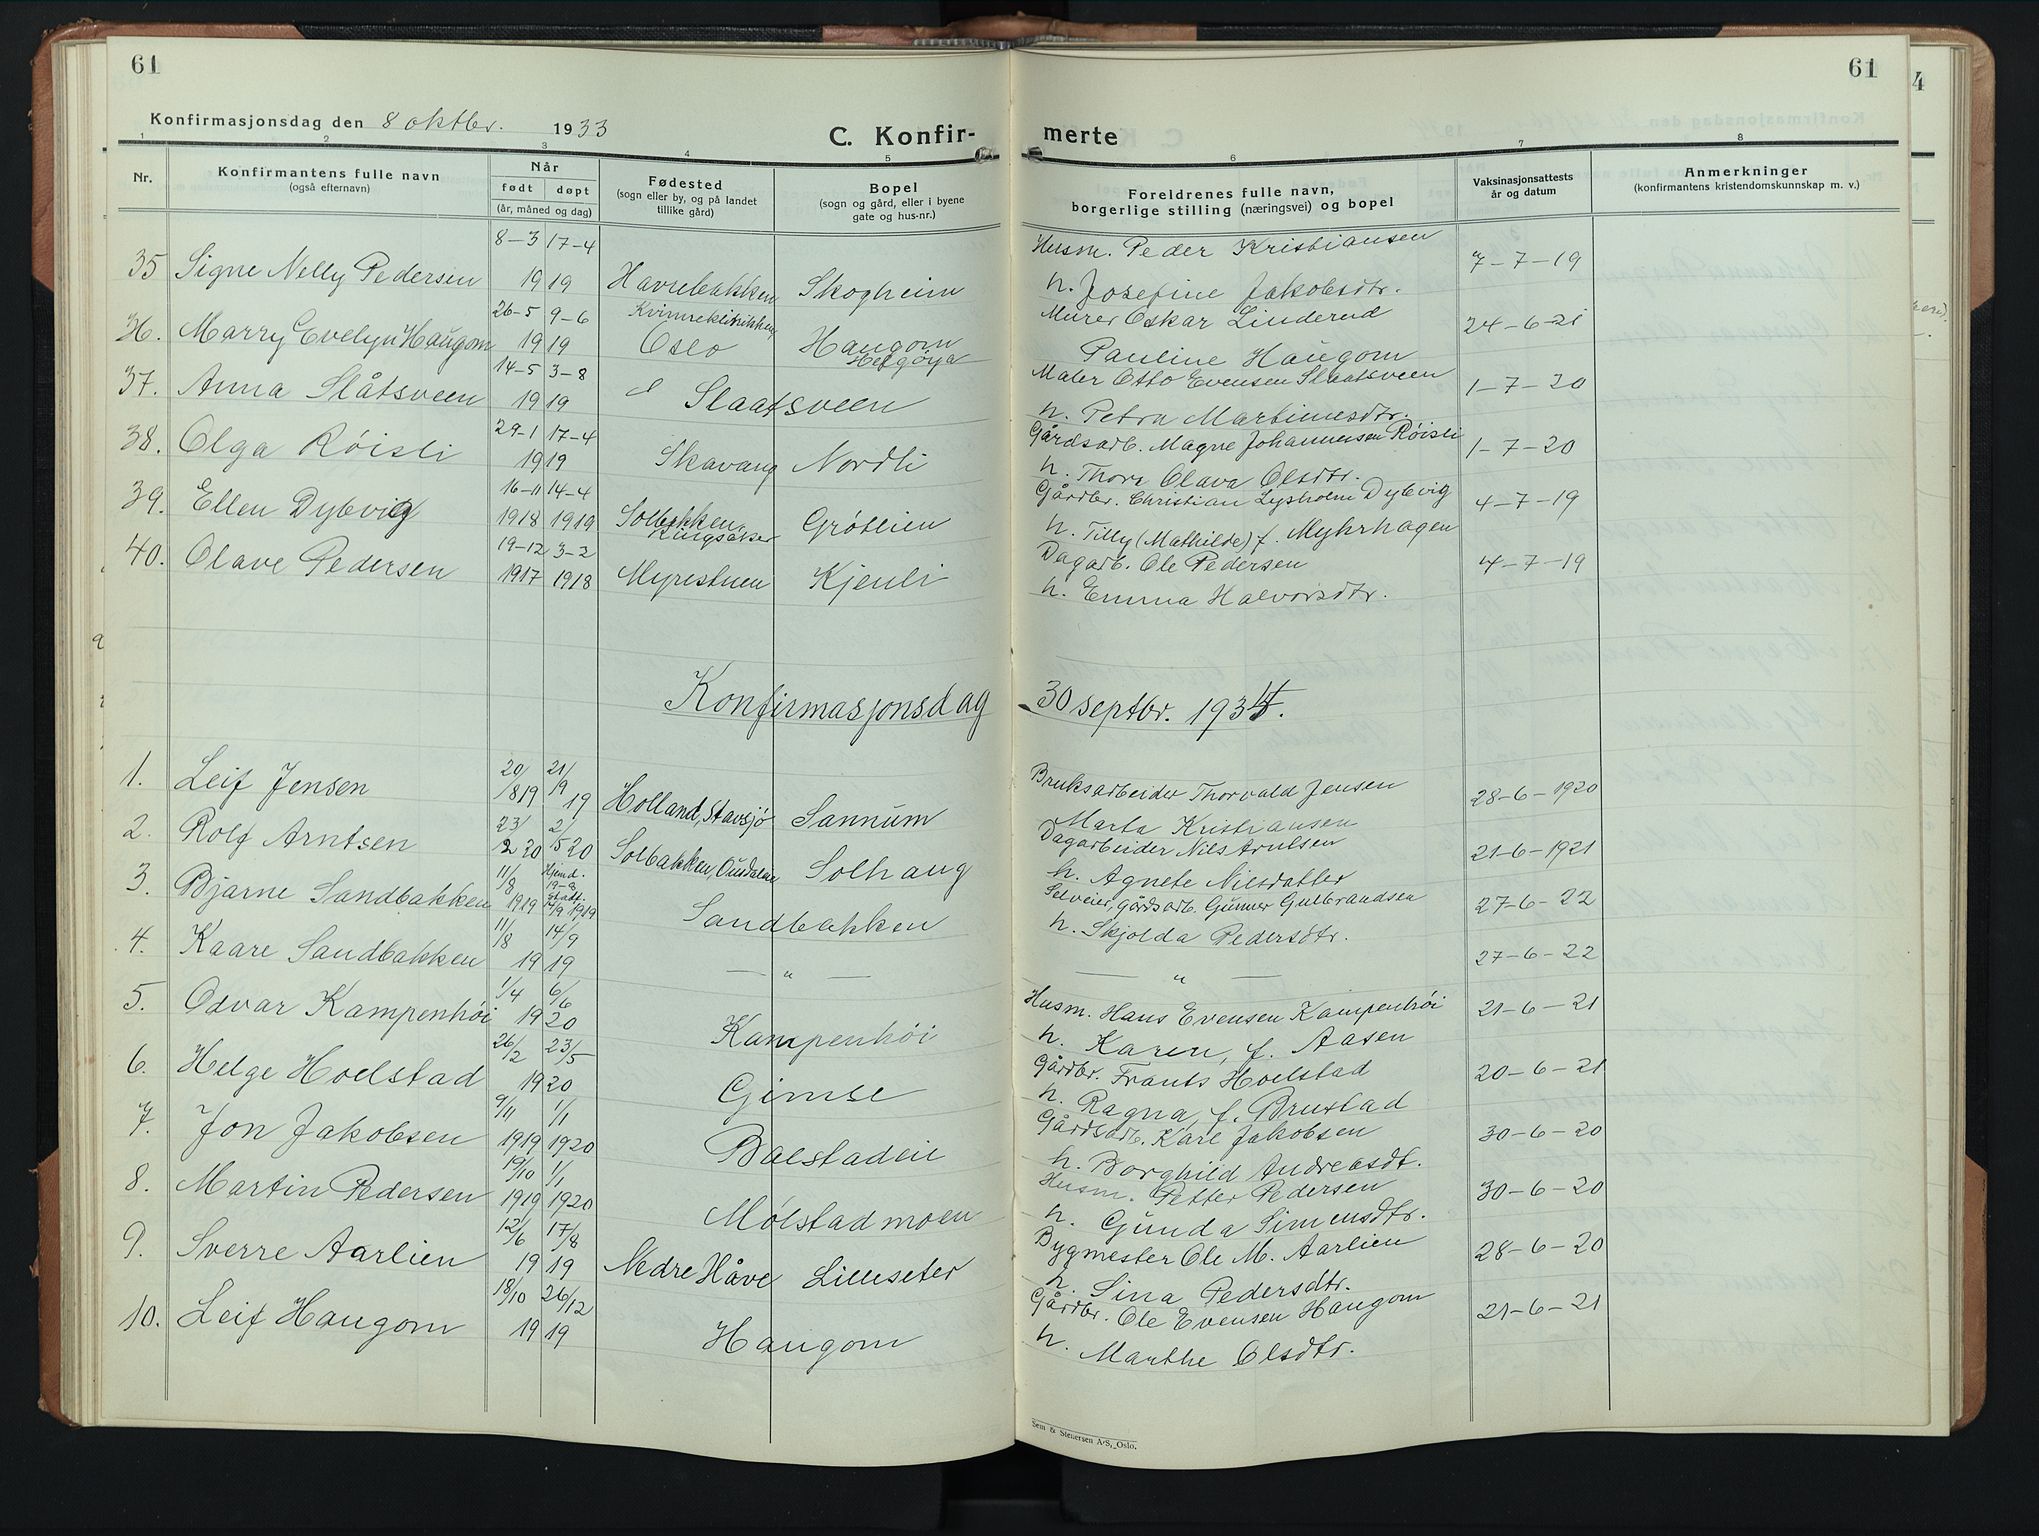 61
61
Konfirmasjonsdag den 8 oktbr. 1933
C. Konfirmerte
1 2 3 4 5 6 7 8
Nr.
Konfirmantens fulle navn
(også efternavn)
Når
født døpt
(år, måned og dag)
Fødested
(sogn eller by, og på landet
tillike gård)
Bopel
(sogn og gård, eller i byene
gate og hus-nr.)
Foreldrenes fulle navn,
borgerlige stilling (næringsvei) og bopel
Vaksinasjonsattests
år og datum
Anmerkninger
(konfirmantens kristendomskunnskap m. v.)
8-3 17-4 Husm. Peder Kristiansen
35 Signe Nelly Pedersen 19 19 Havrebakken Skogheim h. Josefine Jakobsdtr. 7-7-19
26-5 9-6 Kvinneklinikken Murer Oskar Linderud
36. Marry Evelyn Haugom 19 19 Oslo Haugom Helgøya Pauline Haugom 24-6-21
14-5 3-8 Maler Otto Evensen Slaatsveen
37. Anna Slåtsveen 19 19 Slaatsveen h. Petra Martinusdtr. 1-7-20
29-1 17-4 Gårdsarb. Magne Johannesen Røisli
38. Olga Røisli 19 19 Skavang Nordli h. Thora Olava Olsdtr. 1-7-20
16-11 14-4 Gårdbr. Christian Lysholm Dybvig
39. Ellen Dybvig 1918 1919 Solbakken, Ringsaker Grøtlien h. Tilly (Mathilde) f. Myhrhagen 4-7-19
19-12 3-2 Dagarb. Ole Pedersen
40. Olave Pedersen 1917 1918 Myrestuen Kjenli h. Emma Halvorsdtr. 4-7-19
Konfirmasjonsdag 30 septbr. 1934.
1. Leif Jensen 20/8 19 21/19 19 Holland, Stavsjø Sannum Bruksarbeider Thorvald Jensen 28-6-1920
Marta Kristiansen
2. Rolf Arntsen 23/2 20 2/5 20 Solbakken, Ousdalen Solhaug Dagarbeider Nils Arntsen 21-6-1921
h. Agnete Nilsdatter
3. Bjarne Sandbakken 11/8 1919 Hjemd. 19-8 stadf. 14/9 1919 Sandbakken Selveier, gårdsarb. Gunnar Gulbrandsen 27-6-22
h. Skjolda Pedersdtr.
4. Kaare Sandbakken 11/8 19 14/9 19 — " — — " — 27-6-22
5. Odvar Kampenhøi 1/4 19 6/6 20 Kampenhøi Husm. Hans Evensen Kampenhøi 21-6-21
h. Karen, f. Aasen
6. Helge Hoelstad 26/2 19 23/5 20 Gjimse Gårdbr. Frants Hoelstad 20-6-21
h. Ragna, f. Brustad
7. Jon Jakobsen 9/11 1919 1/1 1920 Balstadeie Gårdsarb. Kåre Jakobsen 30-6-20
h. Borghild Andreasdt.
8. Martin Pedersen 19/10 1919 1/1 1920 Mølstadmoen Husm. Petter Pedersen 30-6-20
h. Gunda Simensdtr.
9. Sverre Aarlien 12/6 19 17/8 19 Nedre Håve Lilleseter Bygmester Ole M. Aarlien 28-6-20
h. Sina Pedersdtr.
10. Leif Haugom 18/10 19 26/12 19 Haugom Gårdbr. Ole Evensen Haugom 21-6-21
h. Marthe Olsdtr.
Sem & Stenersen A/S, Oslo.